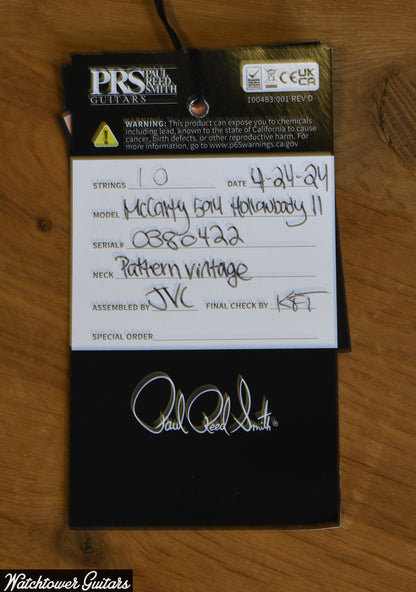 PRS PAUL REED SMITH
GUITARS
UK CA
100483:001 REV D
WARNING: This product can expose you to chemicals
including lead, known to the state of California to cause
cancer, birth defects, or other reproductive harm. For
more information, go to www.p65warnings.ca.gov
STRINGS 10 DATE 4-24-24
MODEL McCarty 594 Hollowbody II
SERIAL# 0380422
NECK Pattern vintage
ASSEMBLED BY JVC FINAL CHECK BY
SPECIAL ORDER
Paul Reed Smith®
Watchtower Guitars